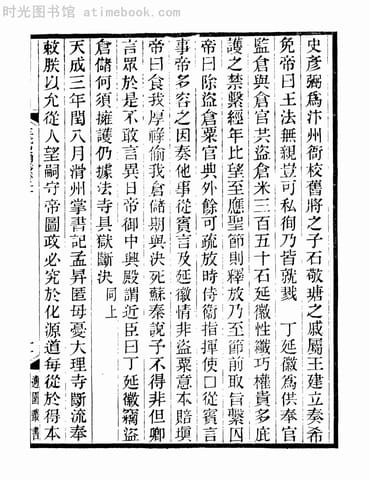 时光图书馆 atimebook.com
史彥弼爲汴州衙校舊將之子石敬瑭之戚屬王建立奏希
免帝曰王法無親豈可私徇乃皆就戮 丁延徽爲供奉官
監倉與倉官共盜倉米三百五十石延徽性纖巧權貴多庇
護之禁繫經年比望至應聖節則釋放乃至節前取旨繫囚
帝曰除盜倉粟官典外餘可疏放時侍衞指揮使囗從賓言
事帝多容之因奏他事從賓言及延徽情非盜粟意本賠塡
帝曰食我厚祿偷我倉儲期與決死蘇秦說子不得非但卿
言眾於是不敢言異日帝御中興殿謂近臣曰丁延徽竊盜
倉儲何須擁護仍據法寺具獄斷決 同上
天成三年閏八月滑州掌書記孟昇匿母憂大理寺斷流奉
敕朕以允從人望嗣守帝圖政必究於化源道每從於得本
適園叢書